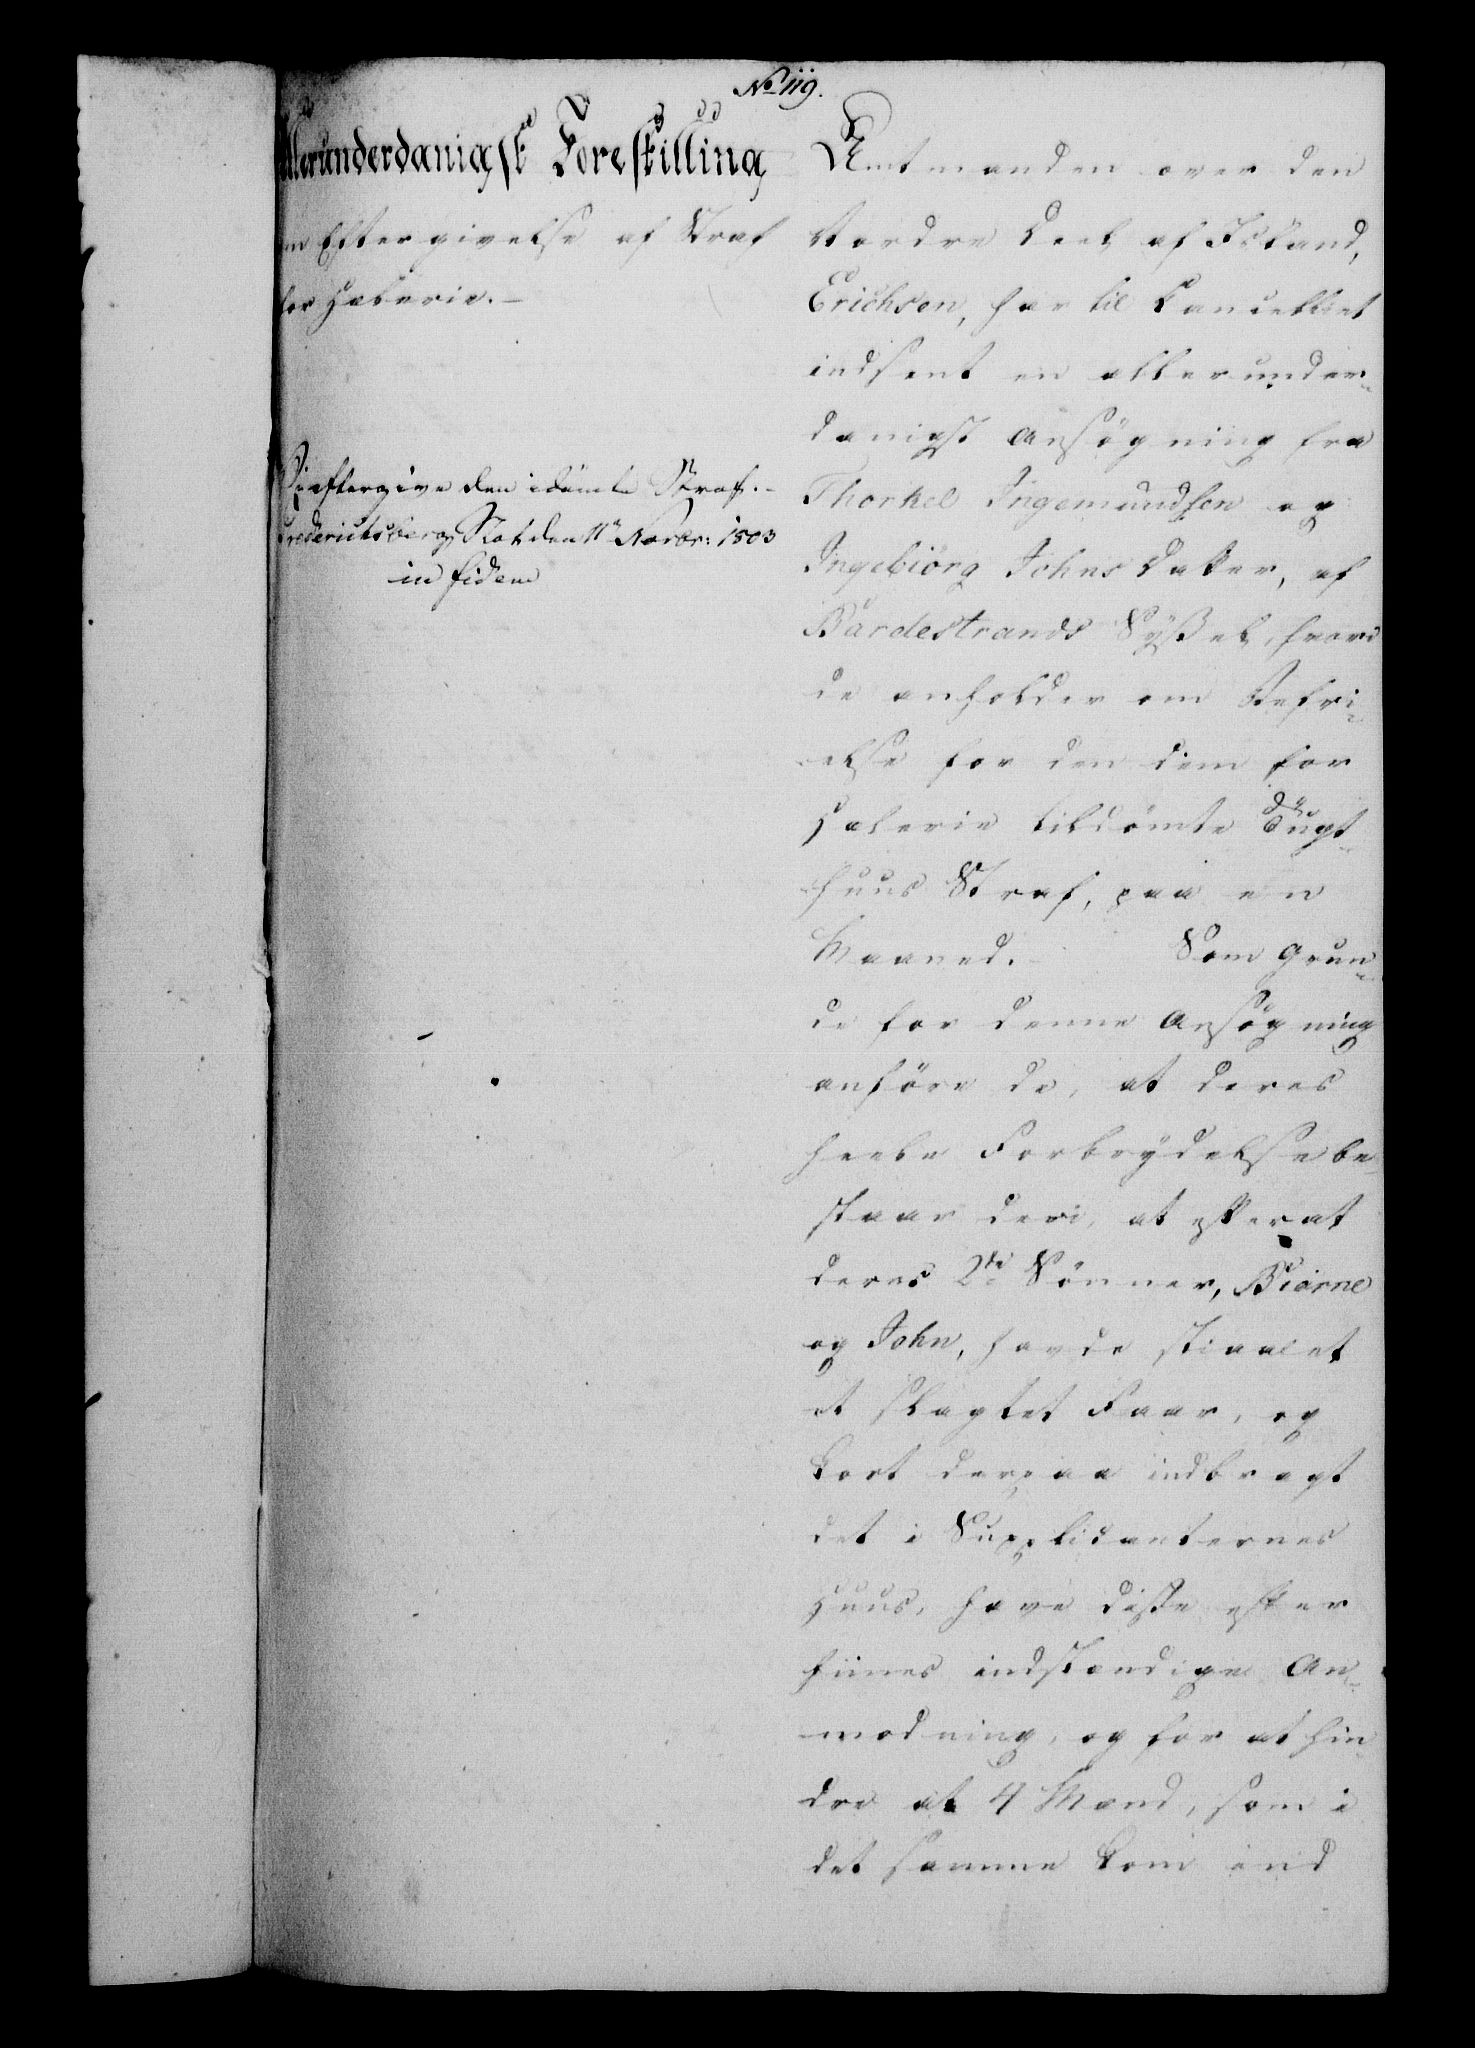 No 119.
Allerunderdanigst Forestilling
om Eftergivelse af Straf
for Hælerie.-
Vi eftergive den idømte Straf.-
Frederichsberg Slot den 11te Novbr: 1803
in fidem
Amtmanden over den
Vestre Deel af Island,
Erichsen, har til Cancelliet
indsent en allerunder-
danigst Ansøgning fra
Thorkel Ingemundsen og
Ingebiörg Johns Datter, af
Bardestrands Syssel, hvori
de anholder om Befri-
else for den dem for
Hælerie tildömte Tugt-
huus Straf, paa en
Maaned.- Som Grun-
de for denne Ansøgning
anföre de, at deres
heele Forbrydelse be
staar deri, at efterat
deres 2de Sönner, Biarne
og John, havde stiaalet
et slagtet Faar, og
kort derpaa indbragt
det i Supplicanternes
Huus, have disse efter
hiines indstændige An-
modning, og for at hin-
dre at 4 Mænd, som i
det samme kom ind